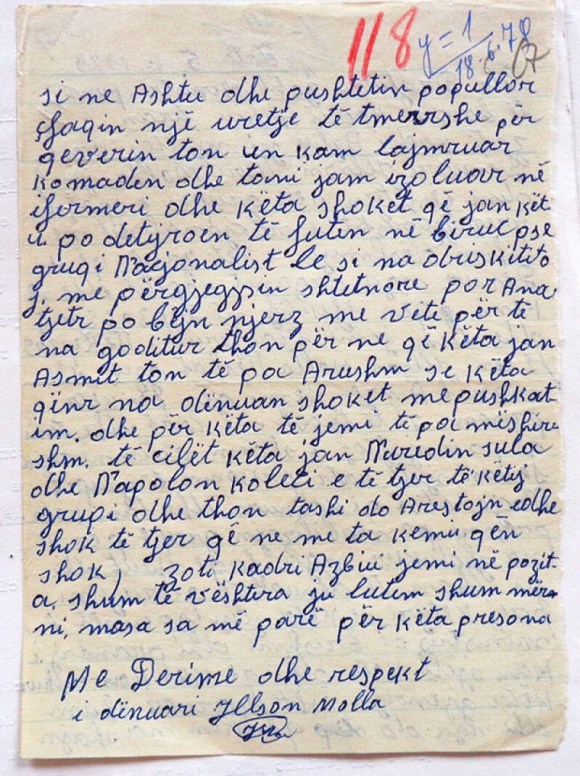 118
y=1
18.6.78
si ne Ashtu dhe pushtetin popullor
çfaqin një uretje të tmerrshe për
qeverin ton un kam lajmruar
komaden dhe tani jam izoluar në
ifermeri dhe këta shoket që jan kët
u po detyroen të futen në biruc pse
grupi Nacjonalist le si na
j. me përgjegjsin shtetnore por Ana
tjetr po bëjn njerz me vete për të
na goditur thon për ne që këta jan
Asmit ton të pa Arushm se këta
qënr na dënuan shoket me pushkat
im. dhe për këta të jemi të pa mëshire
shm. të cilët këta jan Nuredin sula
dhe Napolon Koleci e të tjer të këtij
grupi dhe thon tashi do Arestojn edhe
shok të tjer që ne me ta kemi qën
shok, zoti, kadri Azbiu jemi në pozit
a. shum të vështira ju lutem shum mërr
ni, masa sa më parë për këta presona
Me Derime dhe respekt
i dënuari Ylson Molla